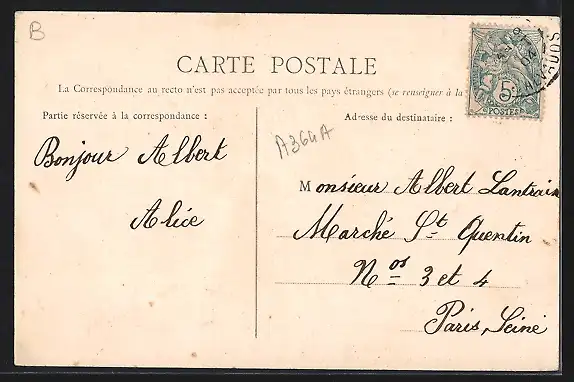 B
CARTE POSTALE
La Correspondance au recto n'est pas acceptée par tous les pays étrangers (se renseigner à la
Partie réservée à la correspondance :
Adresse du destinataire :
5
POSTES
A364A
Bonjour Albert
Alice
Monsieur Albert Lantrain
Marché St Quentin
Nos 3 et 4
Paris, Seine